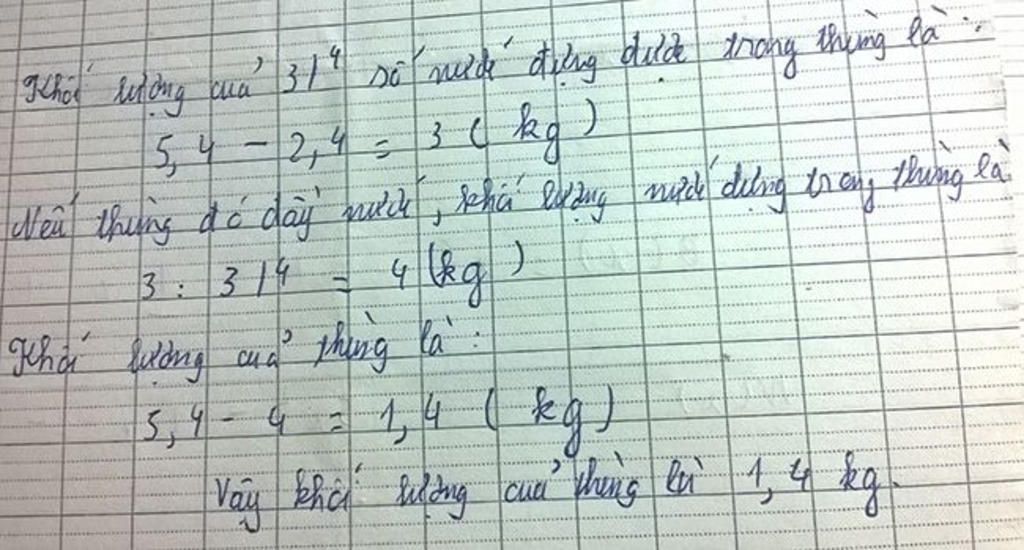 Khối lượng của 3/4 số nước đựng được trong thùng là :
5,4 - 2,4 = 3 ( kg )
Nếu thùng đó đầy nước, khối lượng nước đựng trong thùng là
3 : 3/4 = 4 (kg )
Khối lượng của thùng là :
5,4 - 4 = 1,4 ( kg )
Vậy khối lượng của thùng là 1,4 kg.